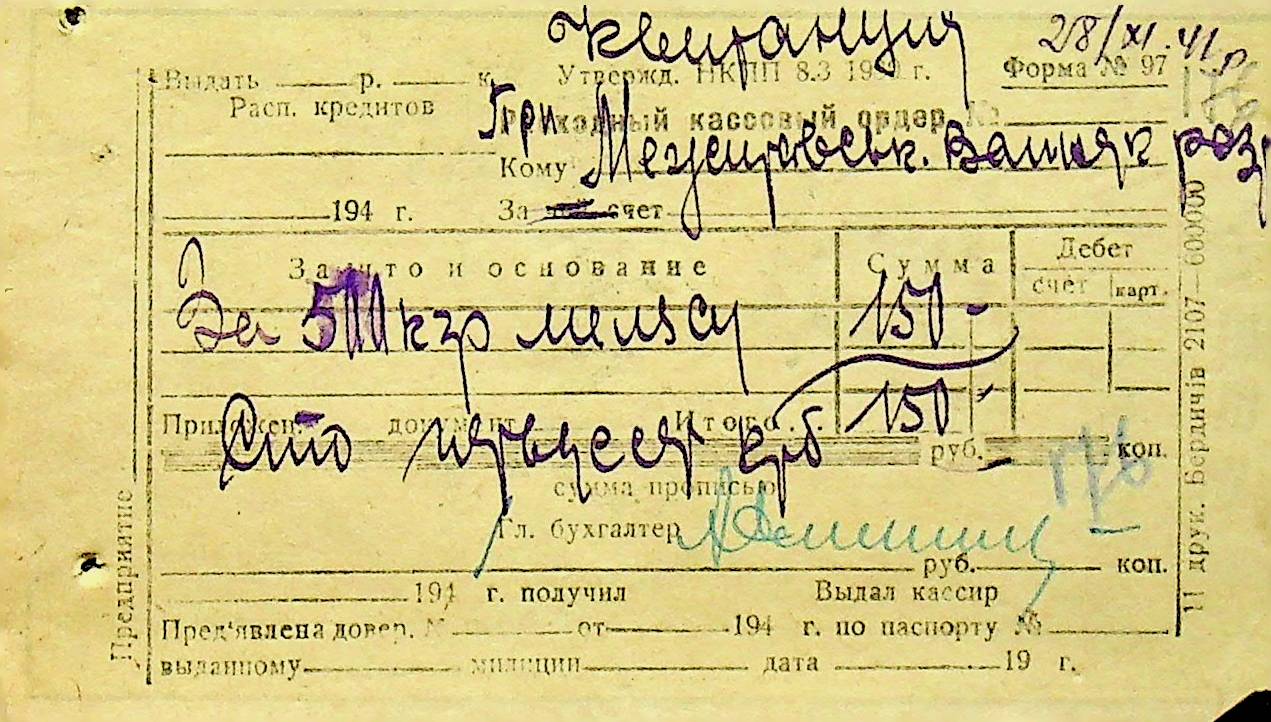 Квитанция 28/XI.41 р
Выдать р. к. Утвержд. НКПП 8.3 19 г. Форма № 97
176
Расп. кредитов Приходный кассовый ордер №
Кому
194 г. За счет
За что и основание Сумма Дебет
счет карт.
За 500 кгр меляси 150 -
150 -
Приложен. документ Итого. .
Сто пятьдесят крб руб. коп.
176
сумма прописью
Гл. бухгалтер
руб. коп.
194 г. получил Выдал кассир
Пред'явлена довер. № от 194 г. по паспорту №
выданному милиции дата 19 г.
Предприятие
11 друк. Бердичів 2107—600000